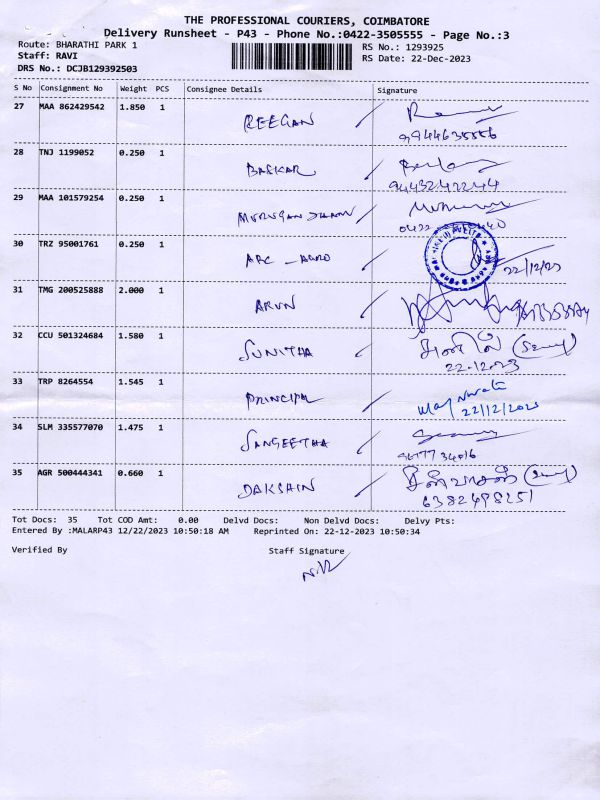 THE PROFESSIONAL COURIERS, COIMBATORE
Delivery Runsheet - P43 - Phone No.:0422-3505555 - Page No.:3
Route: BHARATHI PARK 1
RS No.: 1293925
Staff: RAVI
RS Date: 22-Dec-2023
DRS No.: DCJB129392503
S No Consignment No Weight PCS Consignee Details Signature
27 MAA 862429542 1.850 1 REEGAN
28 TNJ 1199052 0.250 1 BASKAR
29 MAA 101579254 0.250 1
30 TRZ 95001761 0.250 1 ARC - AGRO
22/12/23
31 TMG 200525888 2.000 1 ARUN
32 CCU 501324684 1.580 1 SUNITHA
22-12-023
33 TRP 8264554 1.545 1 PRINCIPAL
22/12/2023
34 SLM 335577070 1.475 1 SANGEETHA
35 AGR 500444341 0.660 1 DAKSHIN
6382498251
Tot Docs: 35 Tot COD Amt: 0.00 Delvd Docs: Non Delvd Docs: Delvy Pts:
Entered By :MALARP43 12/22/2023 10:50:18 AM Reprinted On: 22-12-2023 10:50:34
Verified By Staff Signature